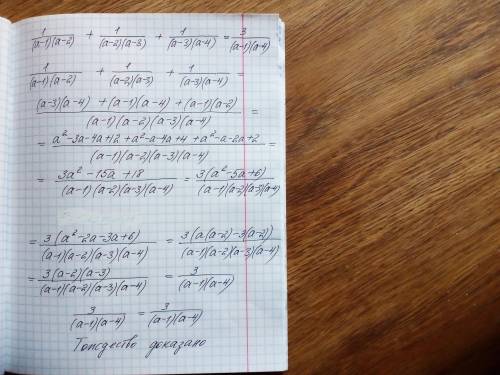 1/((a-1)(a-2)) + 1/((a-2)(a-3)) + 1/((a-3)(a-4)) = 3/((a-1)(a-4))
1/((a-1)(a-2)) + 1/((a-2)(a-3)) + 1/((a-3)(a-4)) =
((a-3)(a-4) + (a-1)(a-4) + (a-1)(a-2))/((a-1)(a-2)(a-3)(a-4)) =
= (a²-3a-4a+12 + a²-a-4a+4 + a²-a-2a+2)/((a-1)(a-2)(a-3)(a-4)) =
= (3a²-15a+18)/((a-1)(a-2)(a-3)(a-4)) = 3(a²-5a+6)/((a-1)(a-2)(a-3)(a-4))
= 3(a²-2a-3a+6)/((a-1)(a-2)(a-3)(a-4)) = 3(a(a-2)-3(a-2))/((a-1)(a-2)(a-3)(a-4))
= 3(a-2)(a-3)/((a-1)(a-2)(a-3)(a-4)) = 3/((a-1)(a-4))
3/((a-1)(a-4)) = 3/((a-1)(a-4))
Тождество доказано